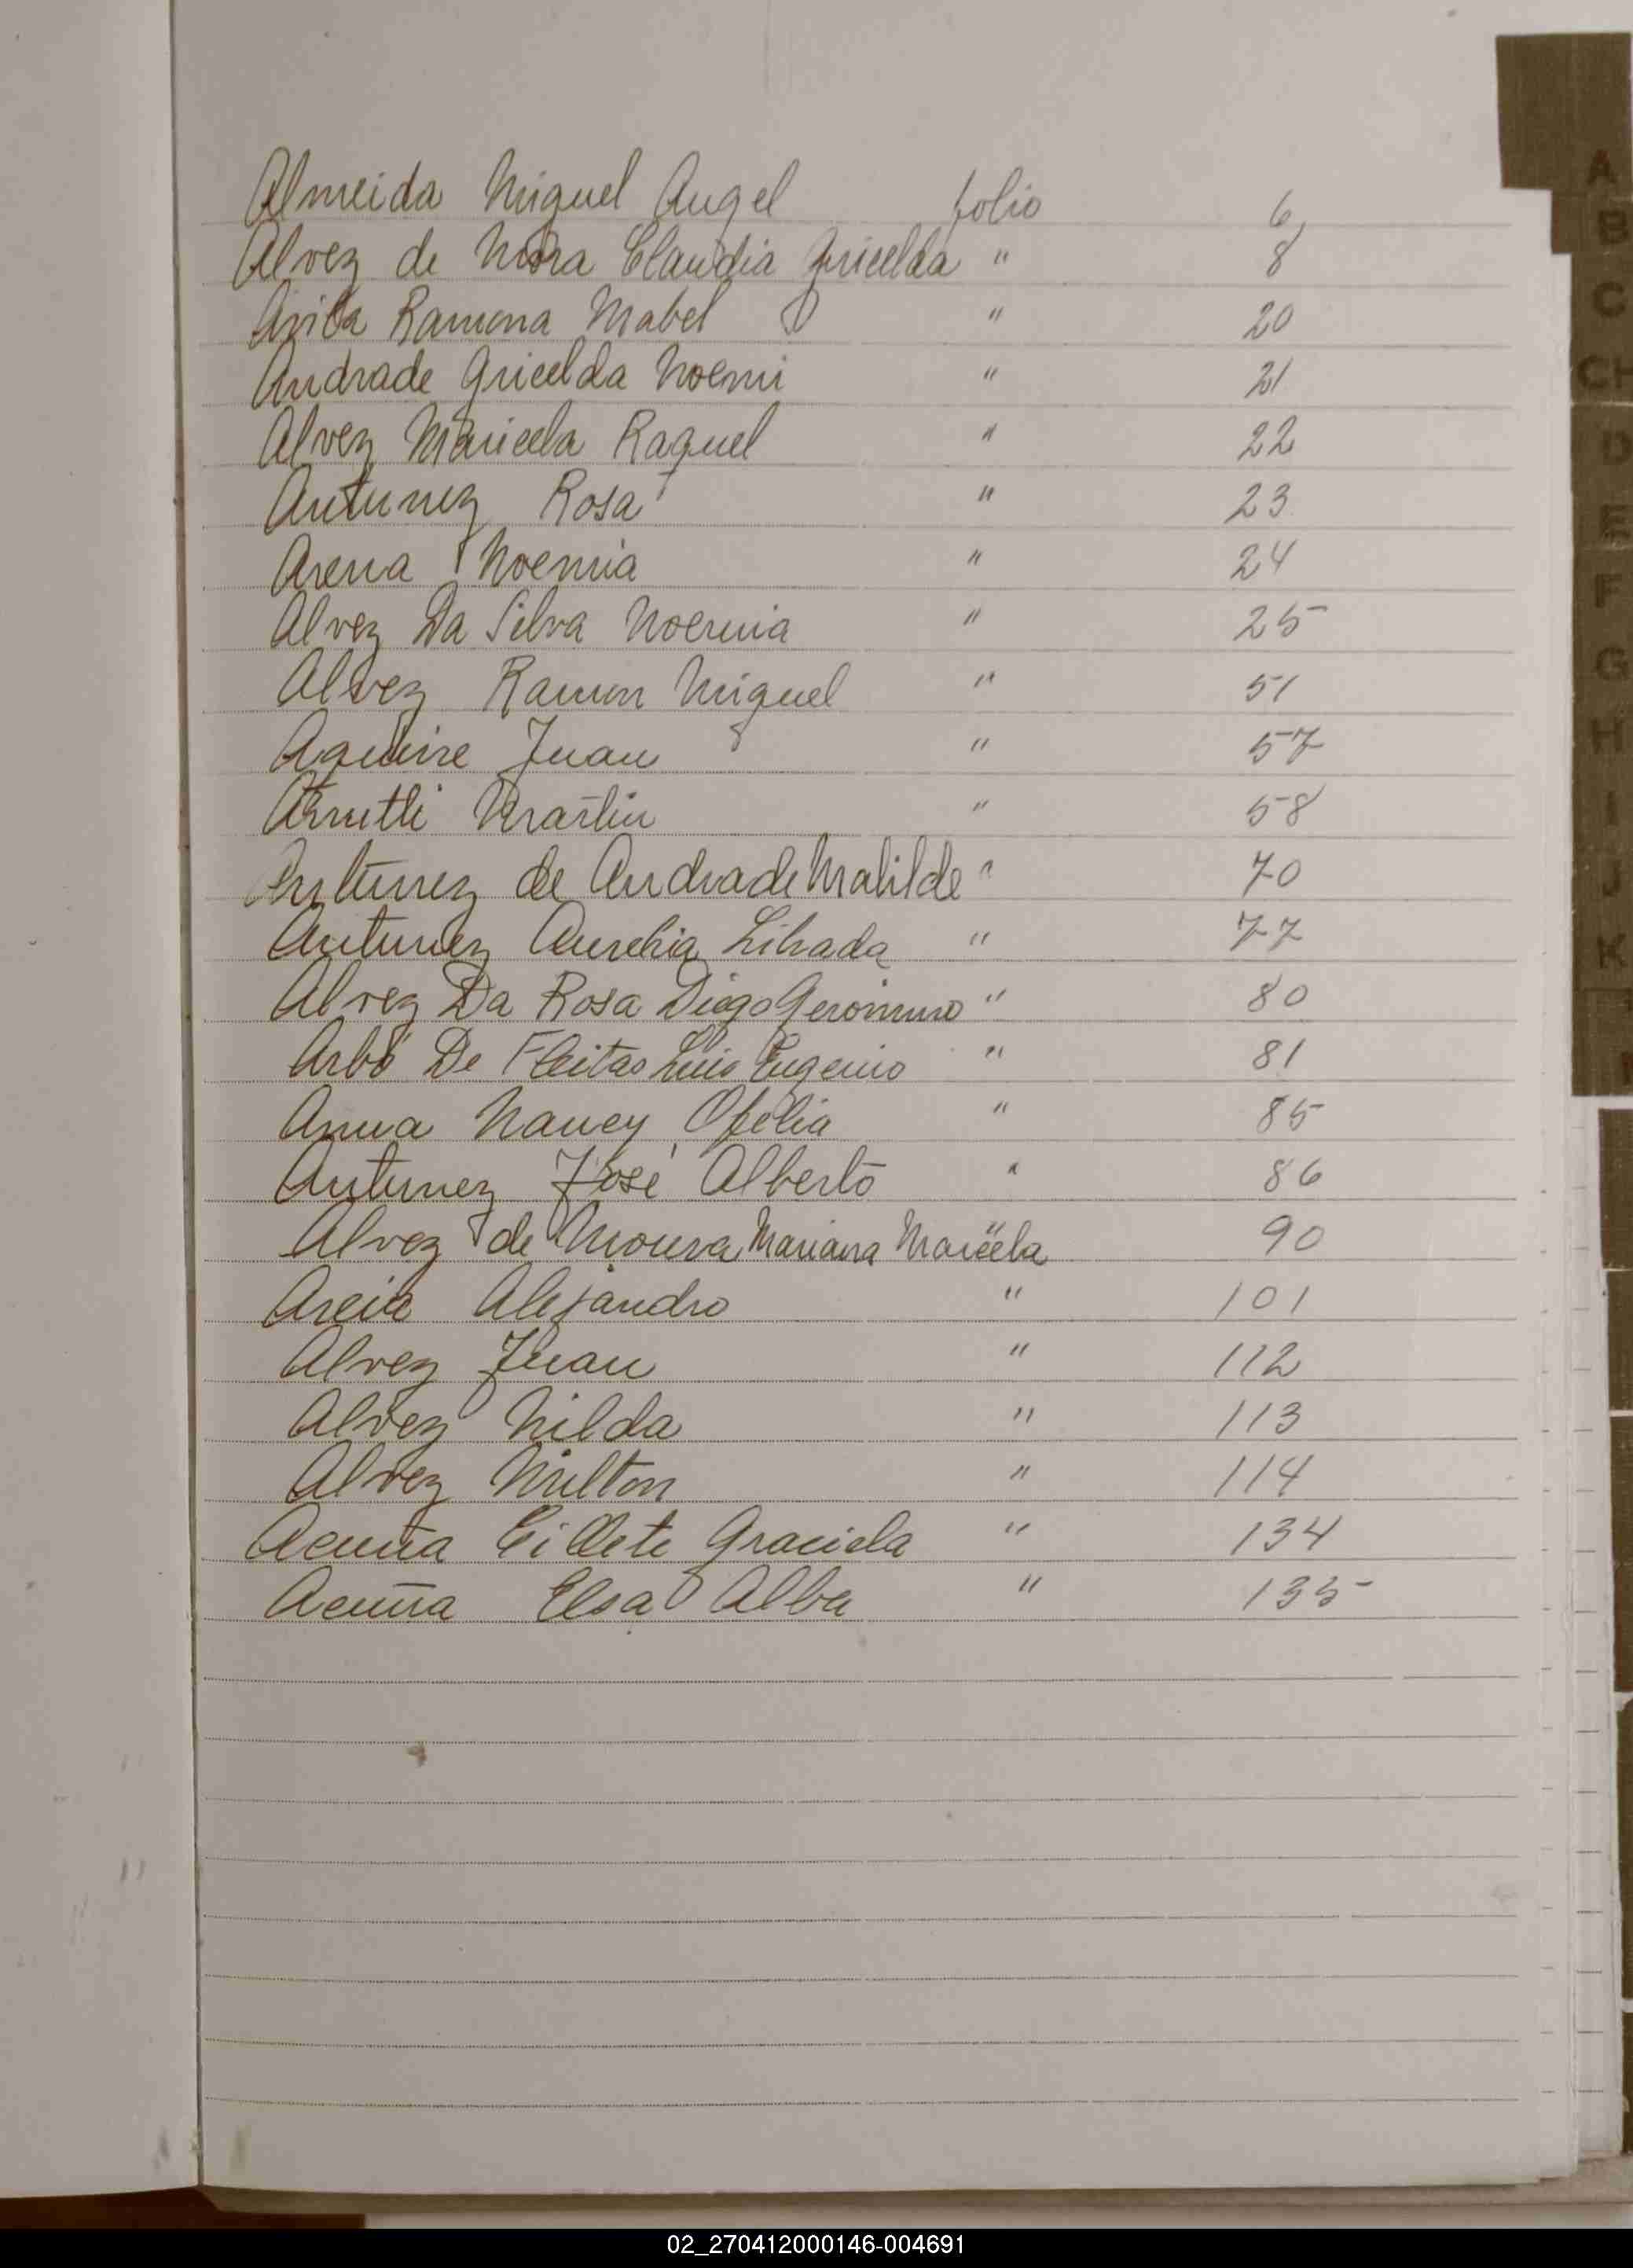 Almeida Miguel Angel folio 6
Alvez de Mora Claudia Gricelda " 8
Avila Ramona Mabel " 20
Andrade Gricelda Noemi " 21
Alvez Maricela Raquel " 22
Antunez Rosa " 23
Arena Noemia " 24
Alvez Da Silva Noemia " 25
Alvez Ramon Miguel " 51
Aguirre Juan " 57
Martin " 58
Antunez de Andrade Matilde " 70
Antunez Aurelia Librada " 77
Alvez Da Rosa Diego Geronimo " 80
Arbo De Fleitas Luis Eugenio " 81
Nancy Ofelia " 85
Antunez José Alberto " 86
Alvez de Moura Mariana Maricela " 90
Alejandro " 101
Alvez Juan " 112
Alvez Nilda " 113
Alvez Milton " 114
Acuña Graciela " 134
Acuña Elsa Alba " 135
A
B
C
CH
D
E
F
G
H
I
J
K
02_270412000146-004691